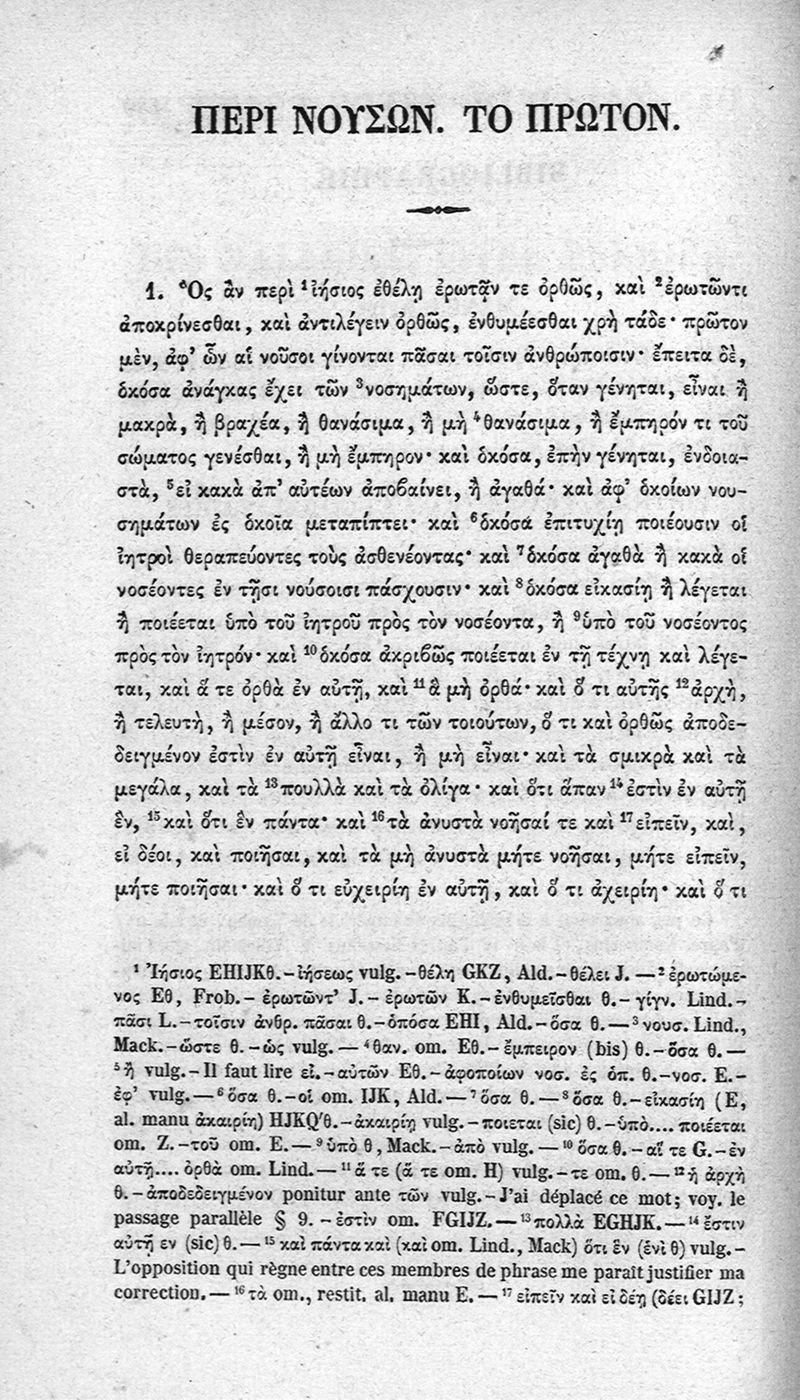 ΠΕΡΙ ΝΟΥΣΩΝ. ΤΟ ΠΡΩΤΟΝ.
1. Ὃς ἂν περὶ ¹ἰήσιος ἐθέλῃ ἐρωτᾷν τε ὀρθῶς, καὶ ²ἐρωτῶντι
ἀποκρίνεσθαι, καὶ ἀντιλέγειν ὀρθῶς, ἐνθυμέεσθαι χρὴ τάδε· πρῶτον
μὲν, ἀφ' ὧν αἱ νοῦσοι γίνονται πᾶσαι τοῖσιν ἀνθρώποισιν· ἔπειτα δὲ,
ὁκόσα ἀνάγκας ἔχει τῶν ³νοσημάτων, ὥστε, ὅταν γένηται, εἶναι ἢ
μακρὰ, ἢ βραχέα, ἢ θανάσιμα, ἢ μὴ ⁴θανάσιμα, ἢ ἔμπηρόν τι τοῦ
σώματος γενέσθαι, ἢ μὴ ἔμπηρον· καὶ ὁκόσα, ἐπὴν γένηται, ἐνδοια-
στὰ, ⁵εἰ κακὰ ἀπ' αὐτέων ἀποβαίνει, ἢ ἀγαθά· καὶ ἀφ' ὁκοίων νου-
σημάτων ἐς ὁκοῖα μεταπίπτει· καὶ ⁶ὁκόσα ἐπιτυχίῃ ποιέουσιν οἱ
ἰητροὶ θεραπεύοντες τοὺς ἀσθενέοντας· καὶ ⁷ὁκόσα ἀγαθὰ ἢ κακὰ οἱ
νοσέοντες ἐν τῇσι νούσοισι πάσχουσιν· καὶ ⁸ὁκόσα εἰκασίῃ ἢ λέγεται
ἢ ποιέεται ὑπὸ τοῦ ἰητροῦ πρὸς τὸν νοσέοντα, ἢ ⁹ὑπὸ τοῦ νοσέοντος
πρὸς τὸν ἰητρόν· καὶ ¹⁰ὁκόσα ἀκριβῶς ποιέεται ἐν τῇ τέχνῃ καὶ λέγε-
ται, καὶ ἅ τε ὀρθὰ ἐν αὐτῇ, καὶ ¹¹ἃ μὴ ὀρθά· καὶ ὅ τι αὐτῆς ¹²ἀρχὴ,
ἢ τελευτὴ, ἢ μέσον, ἢ ἄλλο τι τῶν τοιούτων, ὅ τι καὶ ὀρθῶς ἀποδε-
δειγμένον ἐστὶν ἐν αὐτῇ εἶναι, ἢ μὴ εἶναι· καὶ τὰ σμικρὰ καὶ τὰ
μεγάλα, καὶ τὰ ¹³πουλλὰ καὶ τὰ ὀλίγα· καὶ ὅτι ἅπαν ¹⁴ἐστὶν ἐν αὐτῇ
ἓν, ¹⁵καὶ ὅτι ἓν πάντα· καὶ ¹⁶τὰ ἀνυστὰ νοῆσαί τε καὶ ¹⁷εἰπεῖν, καὶ,
εἰ δέοι, καὶ ποιῆσαι, καὶ τὰ μὴ ἀνυστὰ μήτε νοῆσαι, μήτε εἰπεῖν,
μήτε ποιῆσαι· καὶ ὅ τι εὐχειρίη ἐν αὐτῇ, καὶ ὅ τι ἀχειρίη· καὶ ὅ τι
¹ Ἰήσιος EHIJKθ.-ἰήσεως vulg.-θέλῃ GKZ, Ald.-θέλει J. — ² ἐρωτώμε-
νος Εθ, Frob.- ἐρωτῶντ' J.- ἐρωτῶν K.-ἐνθυμεῖσθαι θ.- γίγν. Lind.-
πᾶσι L.-τοῖσιν ἀνθρ. πᾶσαι θ.-ὁπόσα EHI, Ald.-ὅσα θ.—³νουσ. Lind.,
Mack.-ὥστε θ.-ὡς vulg.—⁴θαν. om. Eθ.-ἔμπειρον (bis) θ.-ὅσα θ.—
⁵ἢ vulg.-Il faut lire εἰ.-αὐτῶν Eθ.-ἀφοποίων νοσ. ἐς ὁπ. θ.-νοσ. E.-
ἐφ' vulg.—⁶ὅσα θ.-οἱ om. IJK, Ald.—⁷ὅσα θ.—⁸ὅσα θ.-εἰκασίη (E,
al. manu ἀκαιρίη) HJKQ'θ.-ἀκαιρίῃ vulg.-ποιεται (sic) θ.-ὑπὸ.... ποιέεται
om. Z.-τοῦ om. E.—⁹ὑπὸ θ, Mack.-ἀπὸ vulg.—¹⁰ὅσα θ.-αἵ τε G.-ἐν
αὐτῇ.... ὀρθὰ om. Lind.—¹¹ἅ τε (ἅ τε om. H) vulg.-τε om. θ.—¹²ἡ ἀρχὴ
θ.-ἀποδεδειγμένον ponitur ante τῶν vulg.-J'ai déplacé ce mot; voy. le
passage parallèle § 9. - ἐστὶν om. FGIJZ.—¹³πολλὰ EGHJK.—¹⁴ἔστιν
αὐτῇ εν (sic) θ.—¹⁵καὶ πάντα καὶ (καὶ om. Lind., Mack) ὅτι ἓν (ἑνὶ θ) vulg.-
L'opposition qui règne entre ces membres de phrase me paraît justifier ma
correction.—¹⁶τὰ om., restit. al. manu E.—¹⁷εἰπεῖν καὶ εἰ δέῃ (δέει GIJZ;